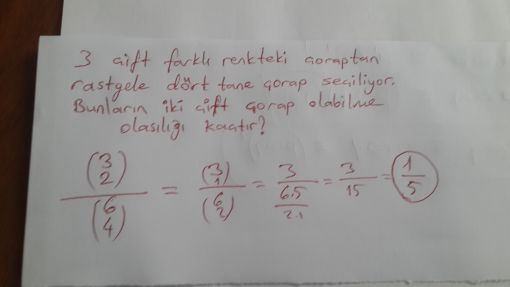 3 çift farklı renkteki çoraptan
rastgele dört tane çorap seçiliyor.
Bunların iki çift çorap olabilme
olasılığı kaçtır?
(3 2) / (6 4) = (3 1) / (6 2) = 3 / (6.5 / 2.1) = 3 / 15 = 1 / 5